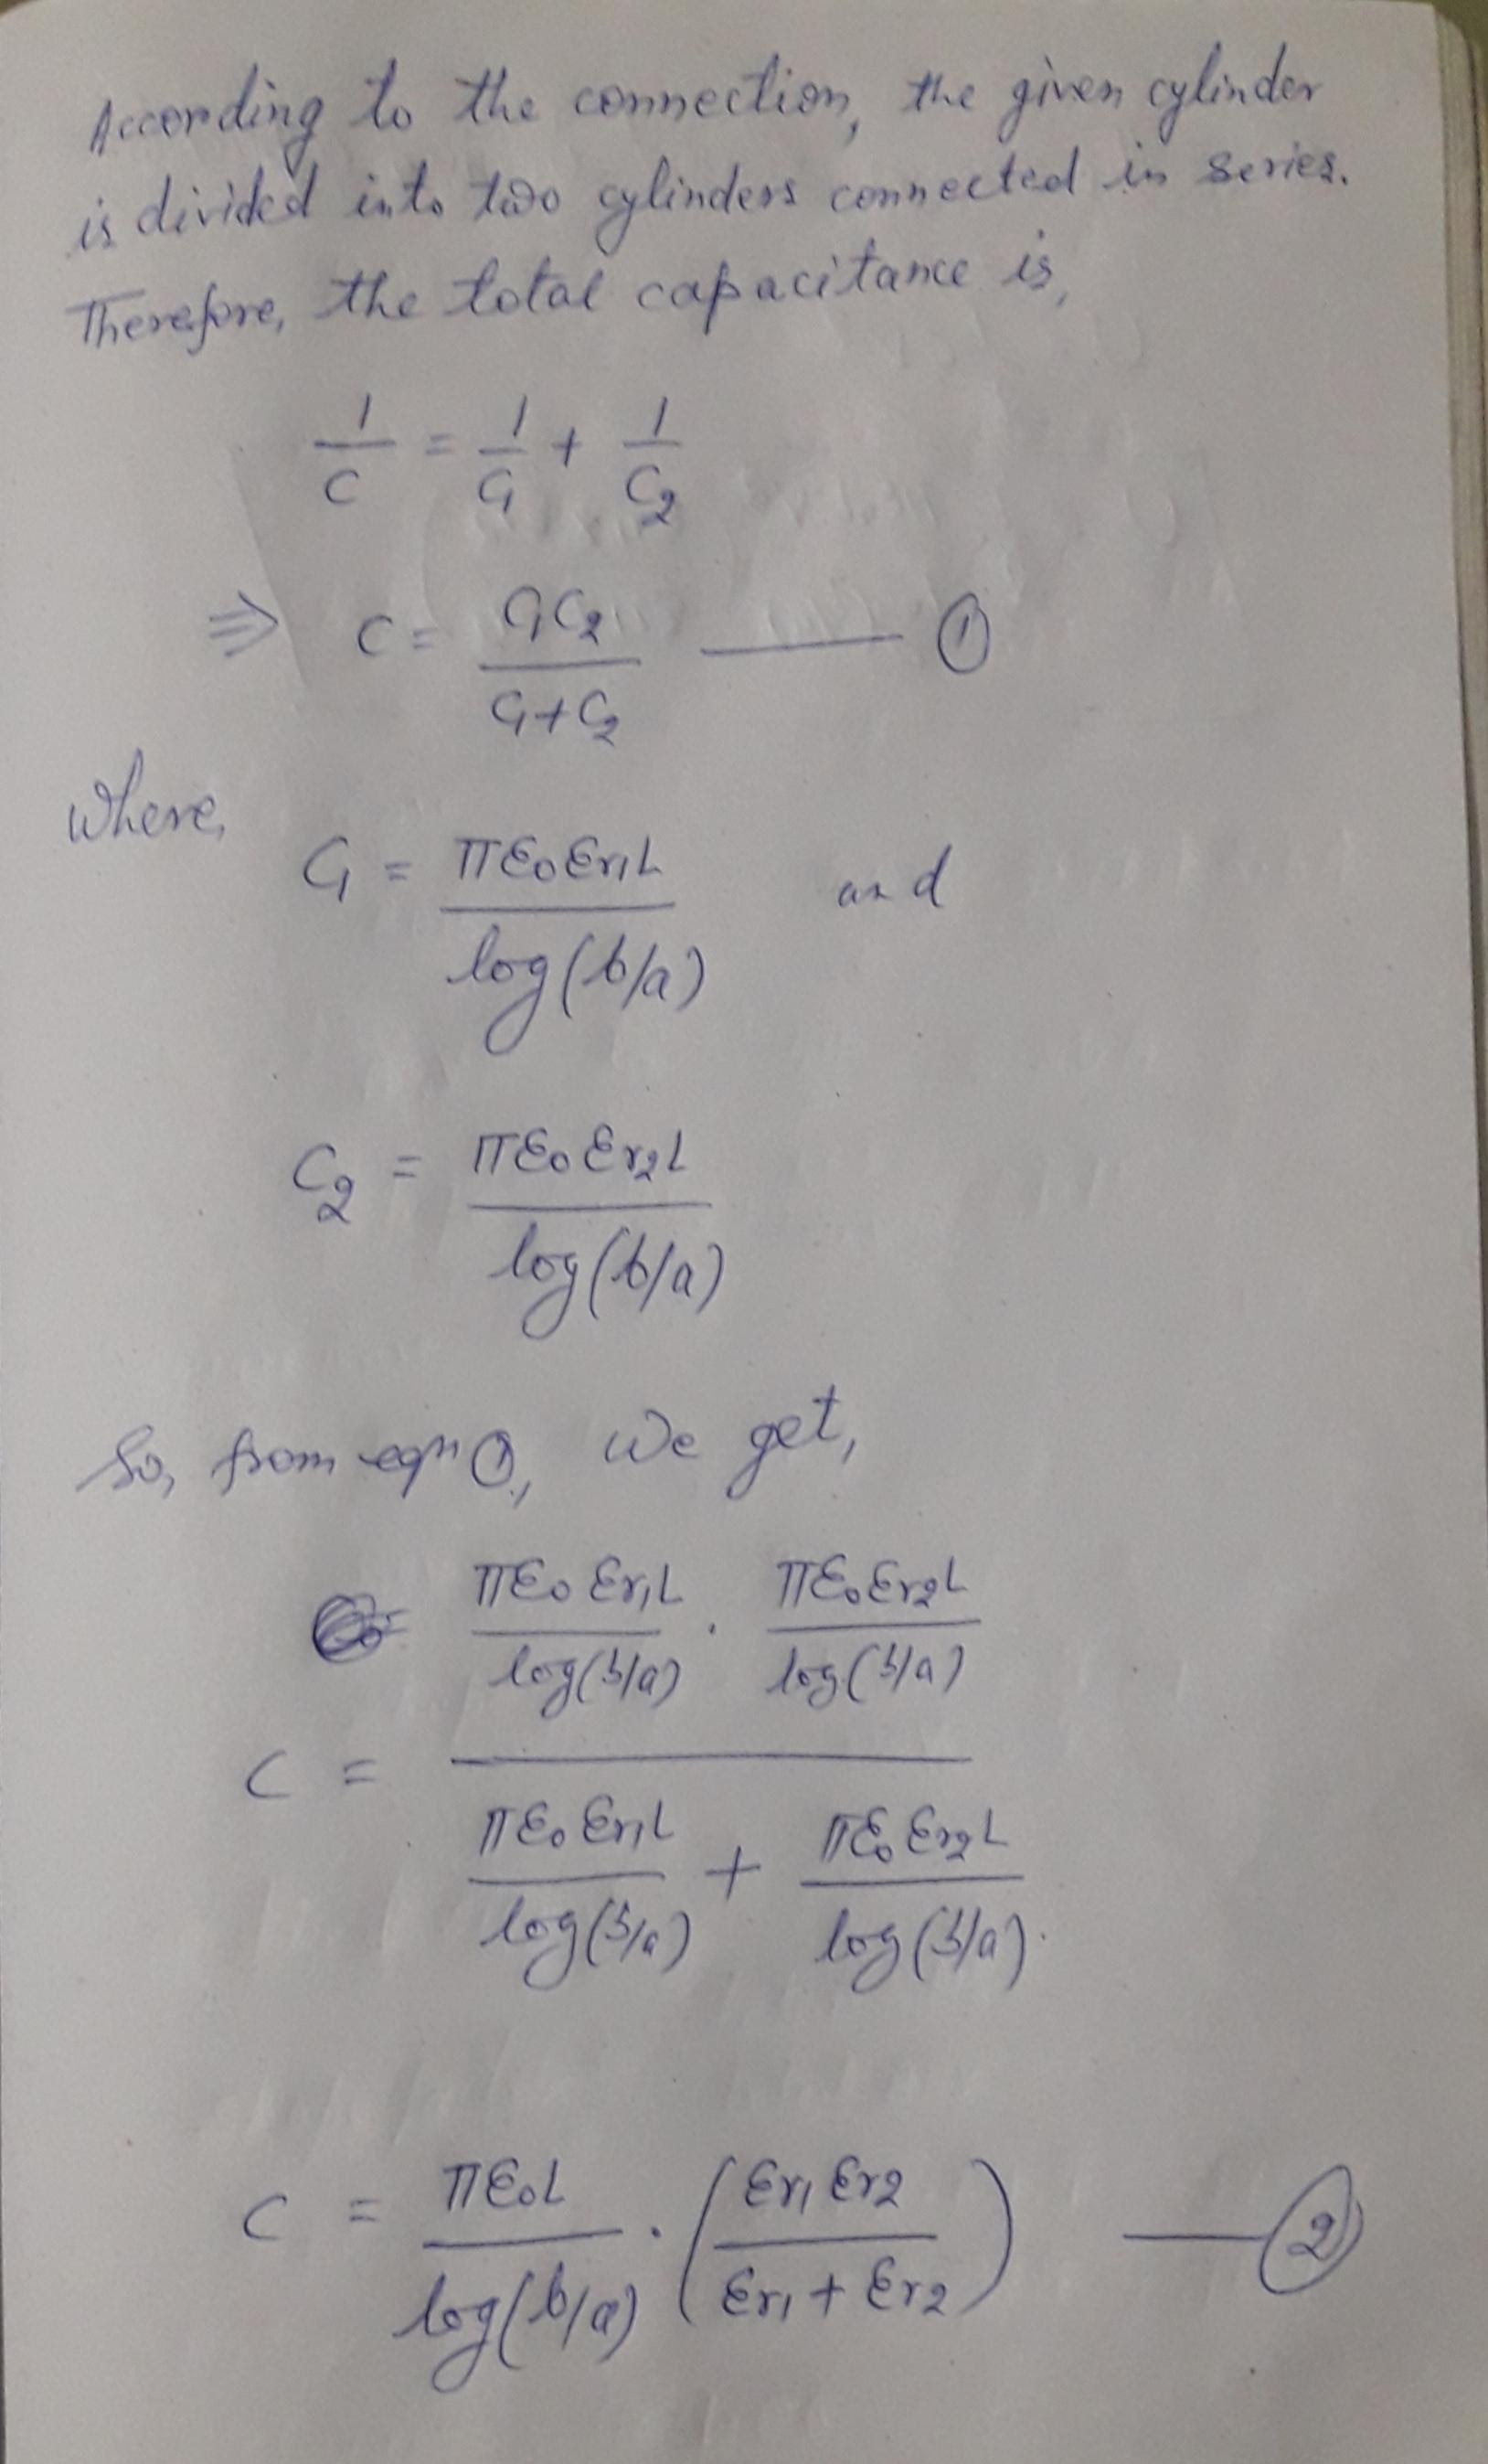 According to the connection, the given cylinder
is divided into two cylinders connected in series.
Therefore, the total capacitance is,
1/C = 1/C₁ + 1/C₂
⇒ C = C₁C₂ / C₁+C₂ —— ①
Where,
C₁ = πε₀εr₁L / log(b/a) and
C₂ = πε₀εr₂L / log(b/a)
So, from eqⁿ ①, we get,
C = (πε₀εr₁L / log(b/a) · πε₀εr₂L / log(b/a)) / (πε₀εr₁L / log(b/a) + πε₀εr₂L / log(b/a))
C = πε₀L / log(b/a) · (εr₁εr₂ / εr₁+εr₂) —— ②